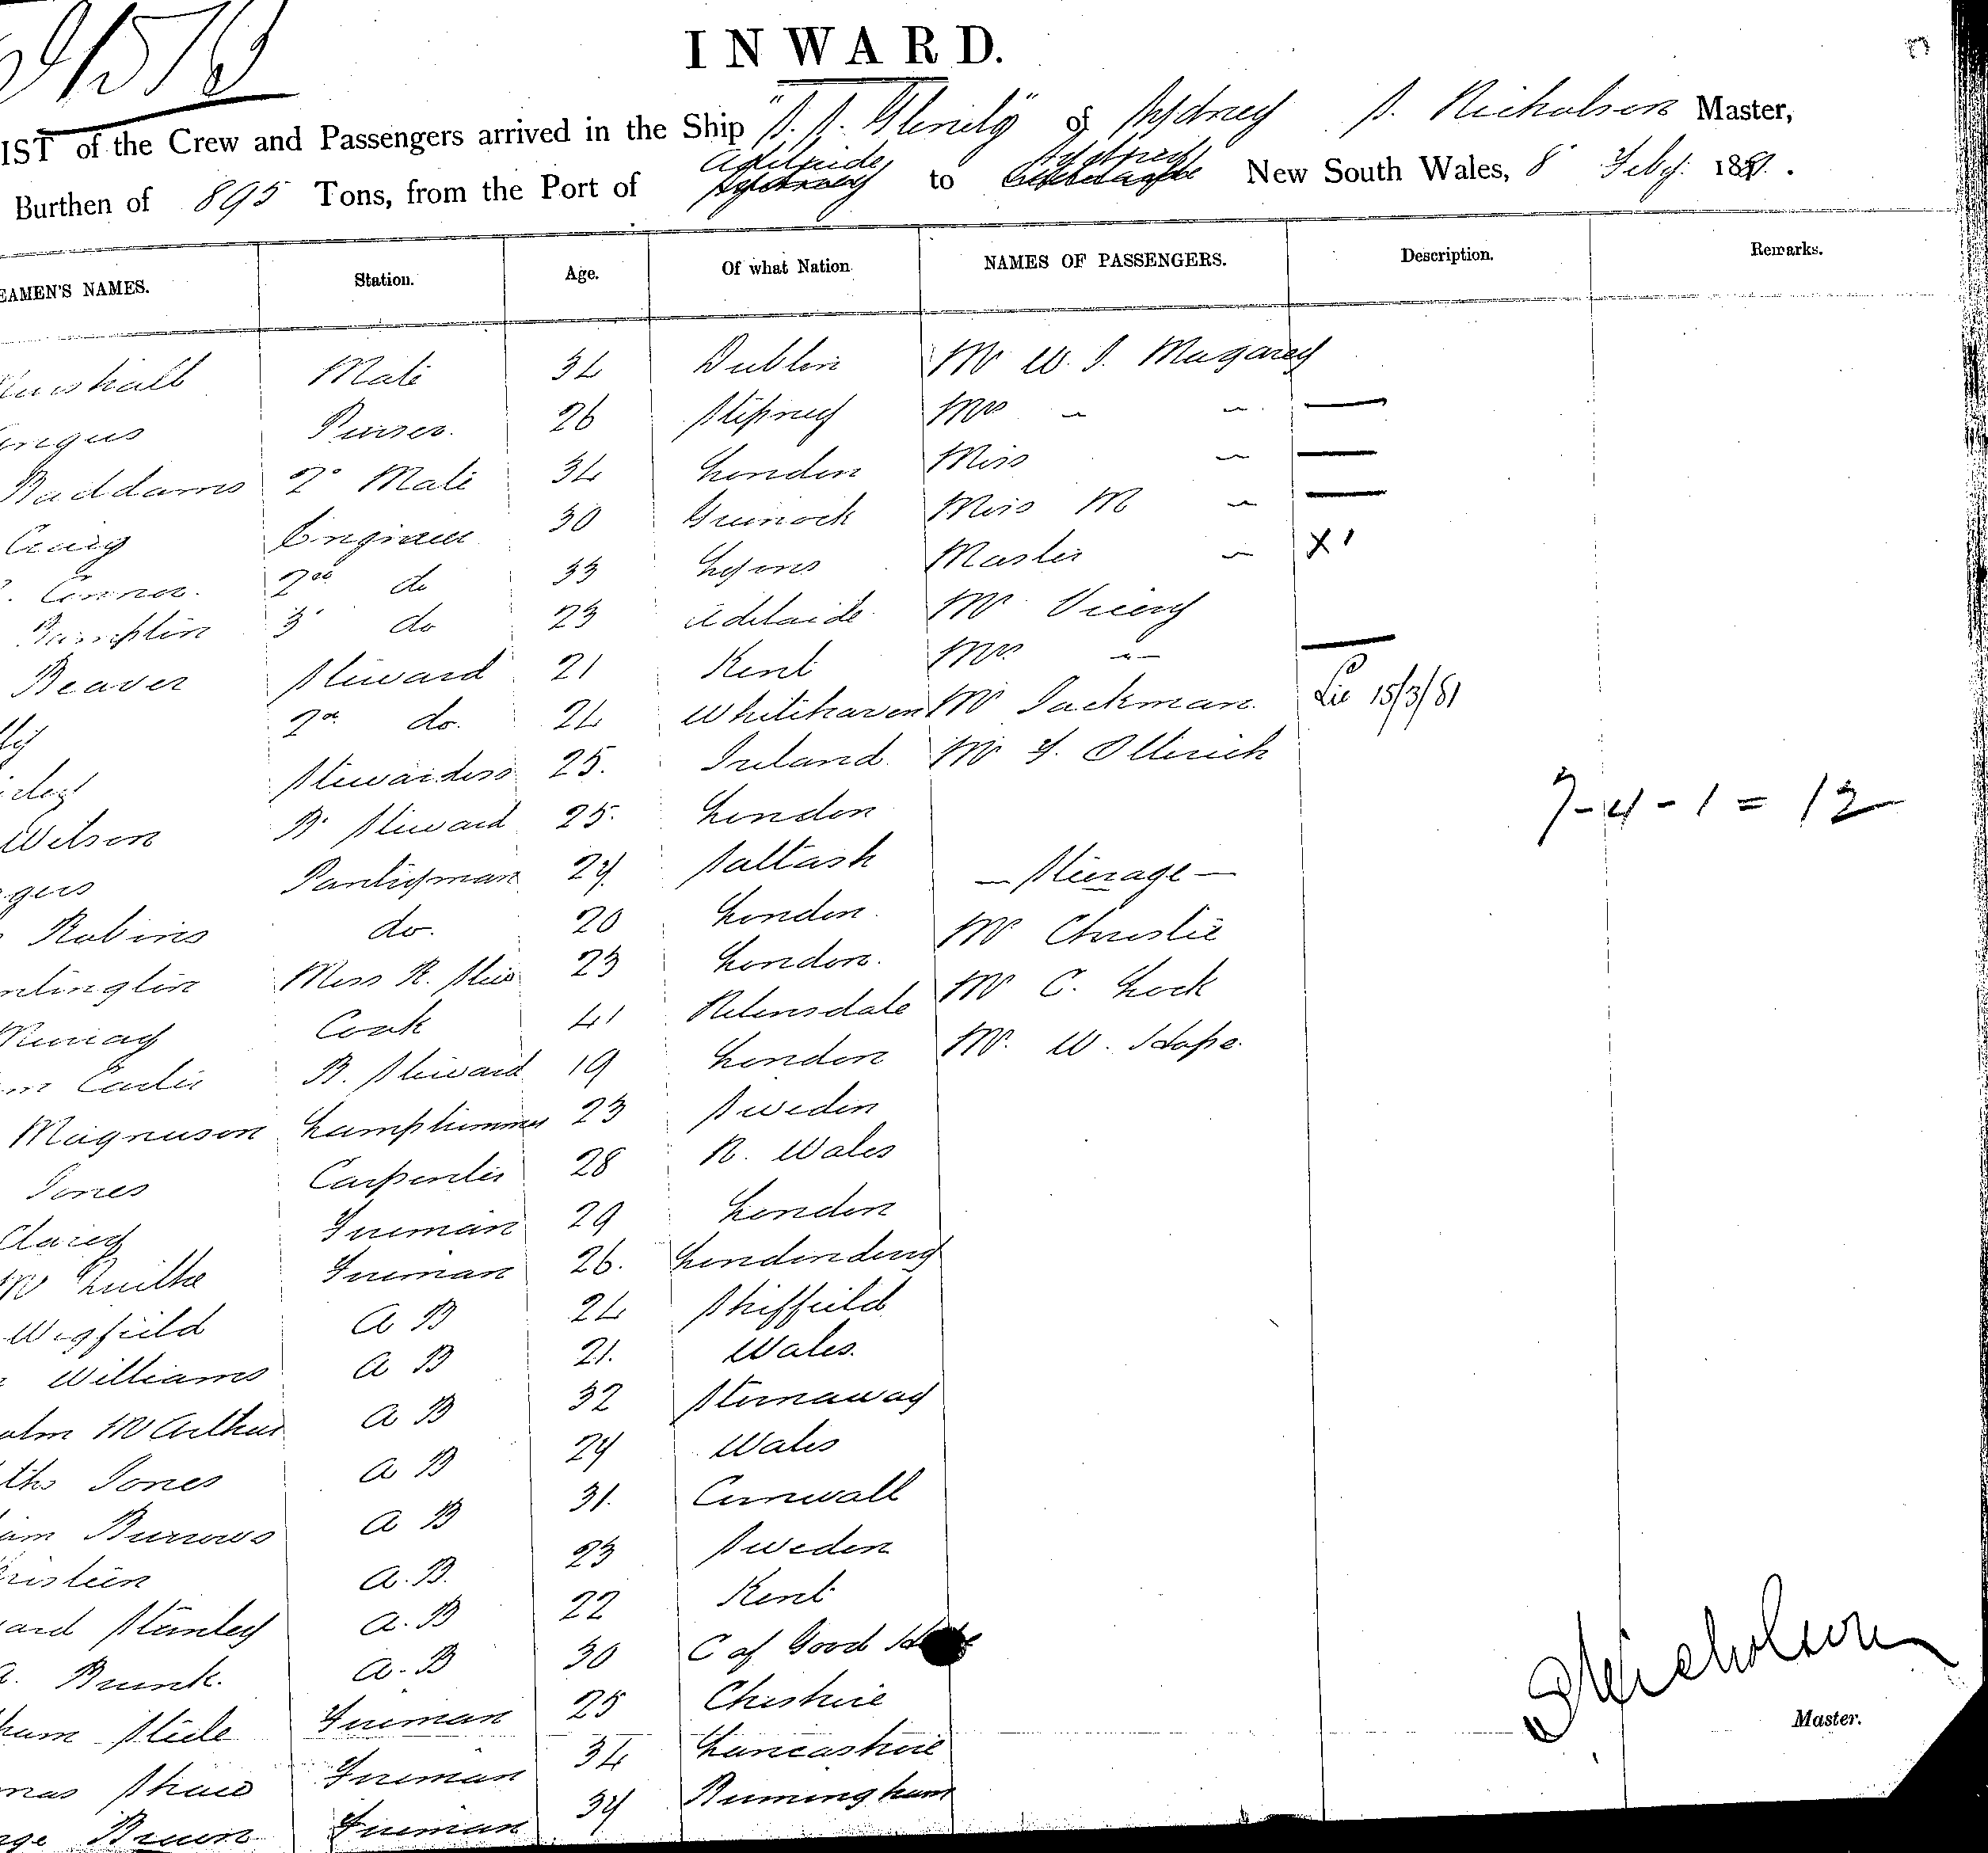 INWARD.
IST of the Crew and Passengers arrived in the Ship "S.S. Glenelg" of Sydney S. Nicholson Master,
Burthen of 895 Tons, from the Port of Adelaide to Sydney New South Wales, 8 Feby: 1881.
EAMEN'S NAMES. Station. Age. Of what Nation. NAMES OF PASSENGERS. Description. Remarks.
Mate 34 Dublin Mr W. J. Magarey
ngus Purser. 26 Stepney Mrs " "
Baddams 2d Mate 34 London Miss "
Craig Engineer 30 Greenock Miss M "
Connor. 2nd do 33 Lyons Master " X
3d do 23 Adelaide Mr Viney
Beaver Steward 21 Kent Mrs "
2nd do. 24 Whitehaven Mr Jackman Lic 15/3/81
Stewardess 25. Ireland. Mr F.
Wilson B. Steward 25. London
7-4-1=12
gers Pantryman 24 Saltash — Steerage —
Robins do. 20 London. Mr Christie
ntington Mess R. Stew 23 London. Mr C. Lock
Murray Cook 41 Mr W. Hope.
Carter B. Steward 19 London
Magnuson Lamptrimmer 23 Sweden
Jones Carpenter 28 N. Wales
Clarey Fireman 29 London
Fireman 26. Londonderry
Wigfield A B 24 Sheffield
Williams A B 21. Wales.
olm McArthur A B 32 Stornaway
ths Jones A B 24 Wales
am Burrows A B 31. Cornwall
A.B. 23 Sweden
ard Stanley A.B 22 Kent
Brunk. A.B 30 C of Good Hope
ham Steele Fireman 25 Cheshire
mas Shaw Fireman 34 Lancashire
rge Brown Fireman 34 Birmingham
S Nicholson
Master.